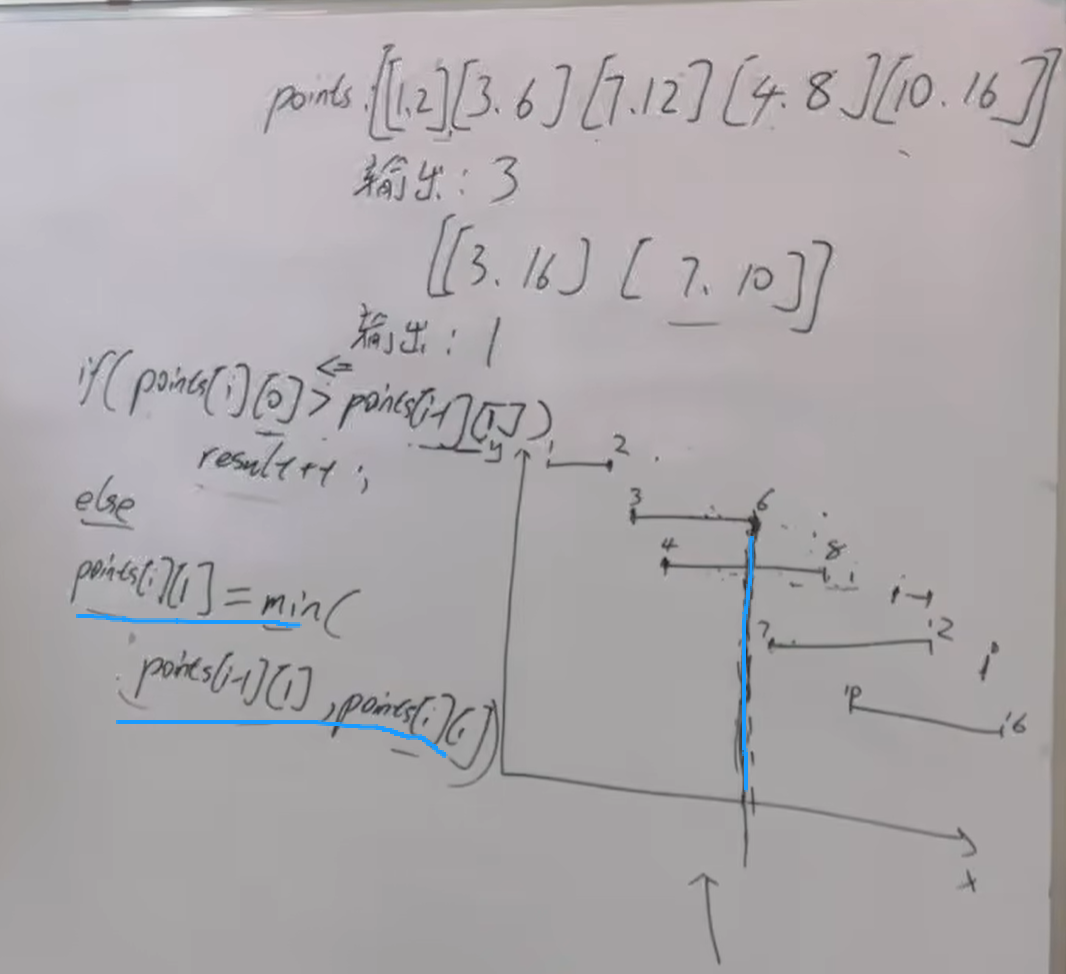 points. [[1.2][3.6][7.12][4.8][10.16]]
输出: 3
[[3.16] [7.10]]
输出: 1
<=
if(points[i][0]>points[i-1][1])
result++;
else
points[i][1]=min(
points[i-1][1],points[i][1])
y
1 2
3 6
4 8
7 12
10 16
x